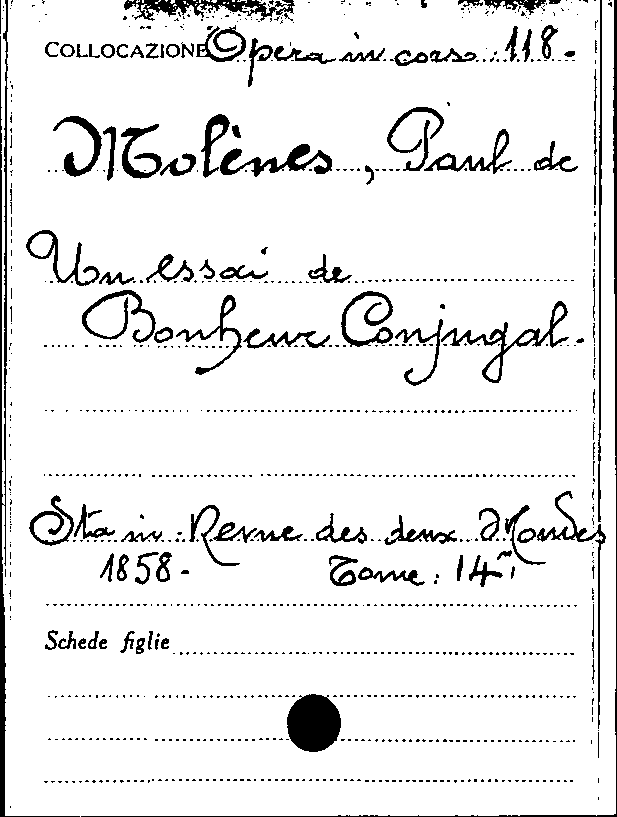 COLLOCAZIONE Opera in corso. 118.
Molènes, Paul de
Un essai de
Bonheur Conjugal.
Sta in: Revue des deux Mondes
1858. Tome: 14
Schede figlie